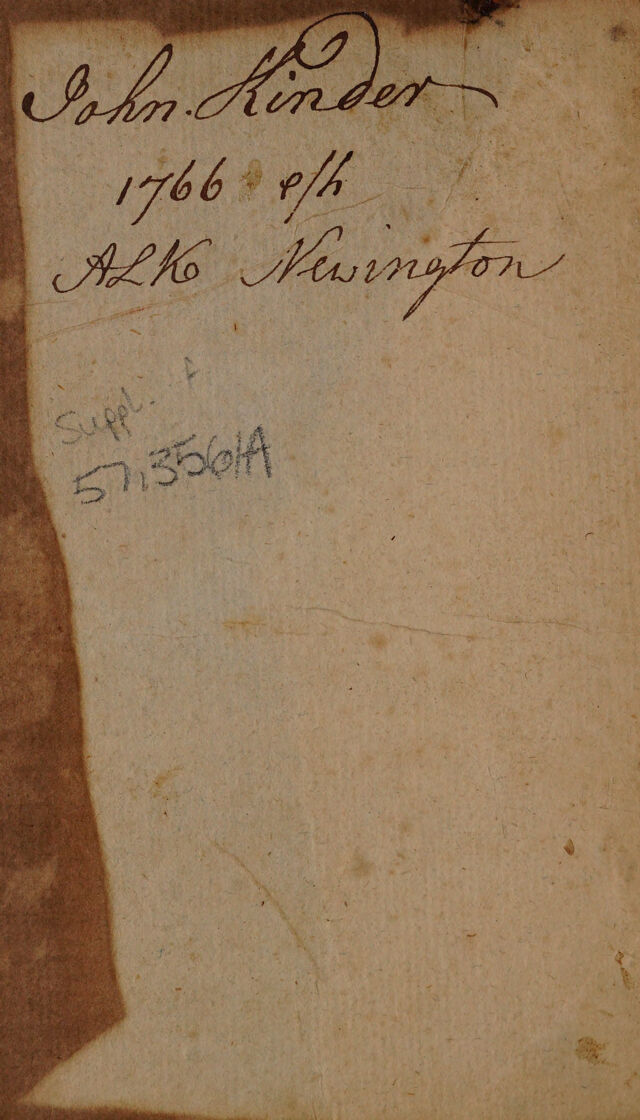 John. Kinder
1766 e/h
ALK Newington
Suppl.
57,356/A